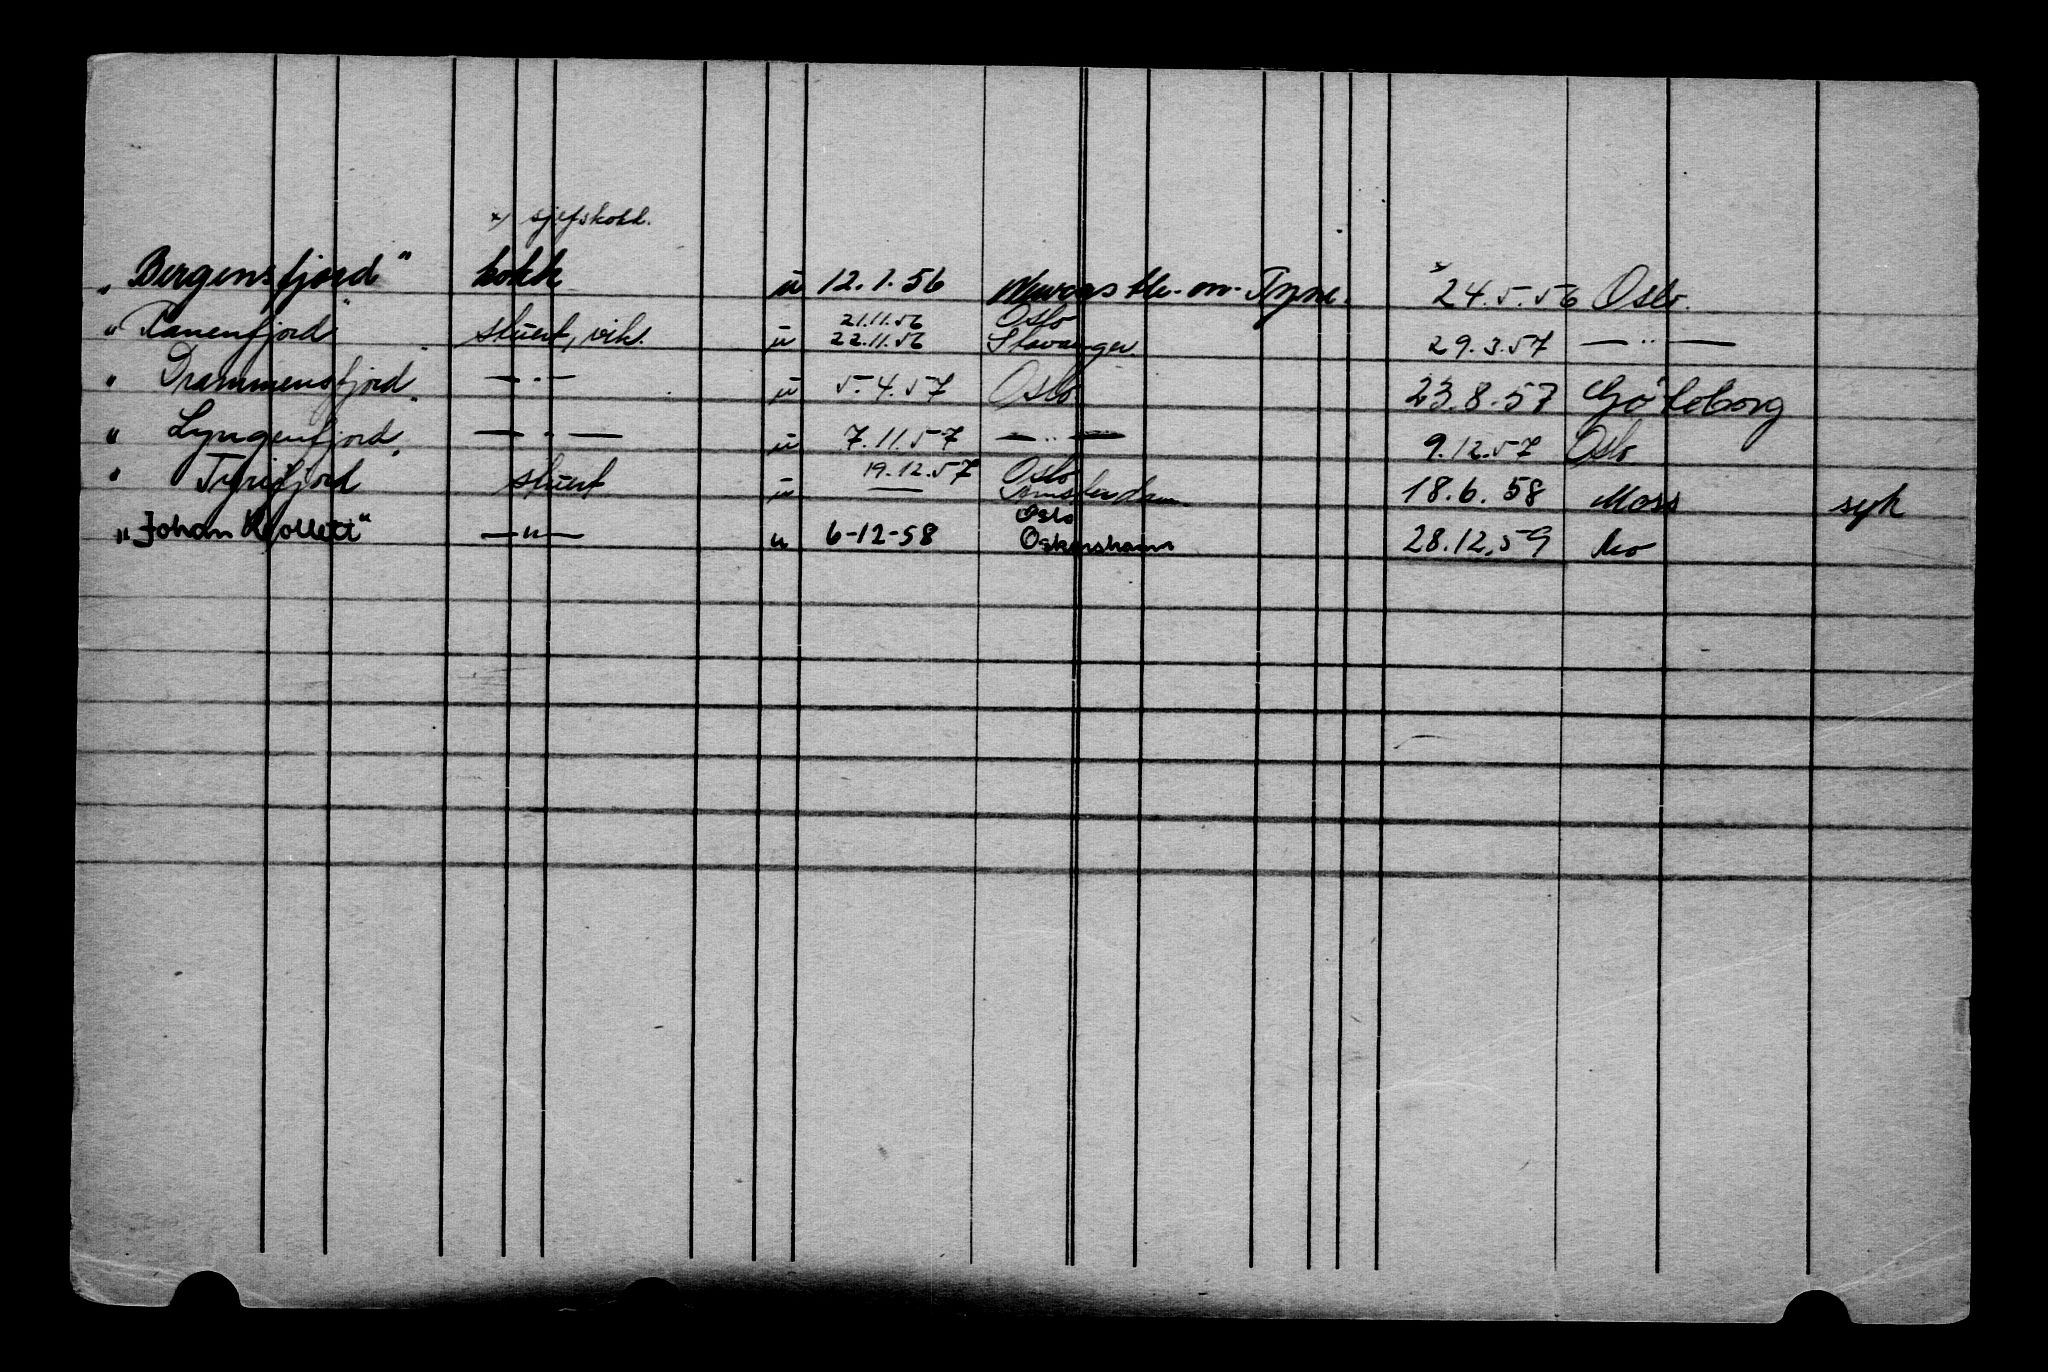 x) sjefskokk.
"Bergensfjord" kokk u 12.1.56 Newcastle-on-Tyne. x 24.5.56 Oslo.
21.11.56 Oslo
"Ranenfjord" stuert, vik. u 22.11.56 Stavanger 29.3.57 — " —
" Drammensfjord" — " — u 5.4.57 Oslo 23.8.57 Göteborg
" Lyngenfjord" — " — u 7.11.57 — " — 9.12.57 Oslo
19.12.57 Oslo
" Tyrifjord stuert u — Amsterdam 18.6.58 Moss syk
Oslo
"Johan Collett" — " — u 6-12-58 Oskarshamn 28.12.59 Mo